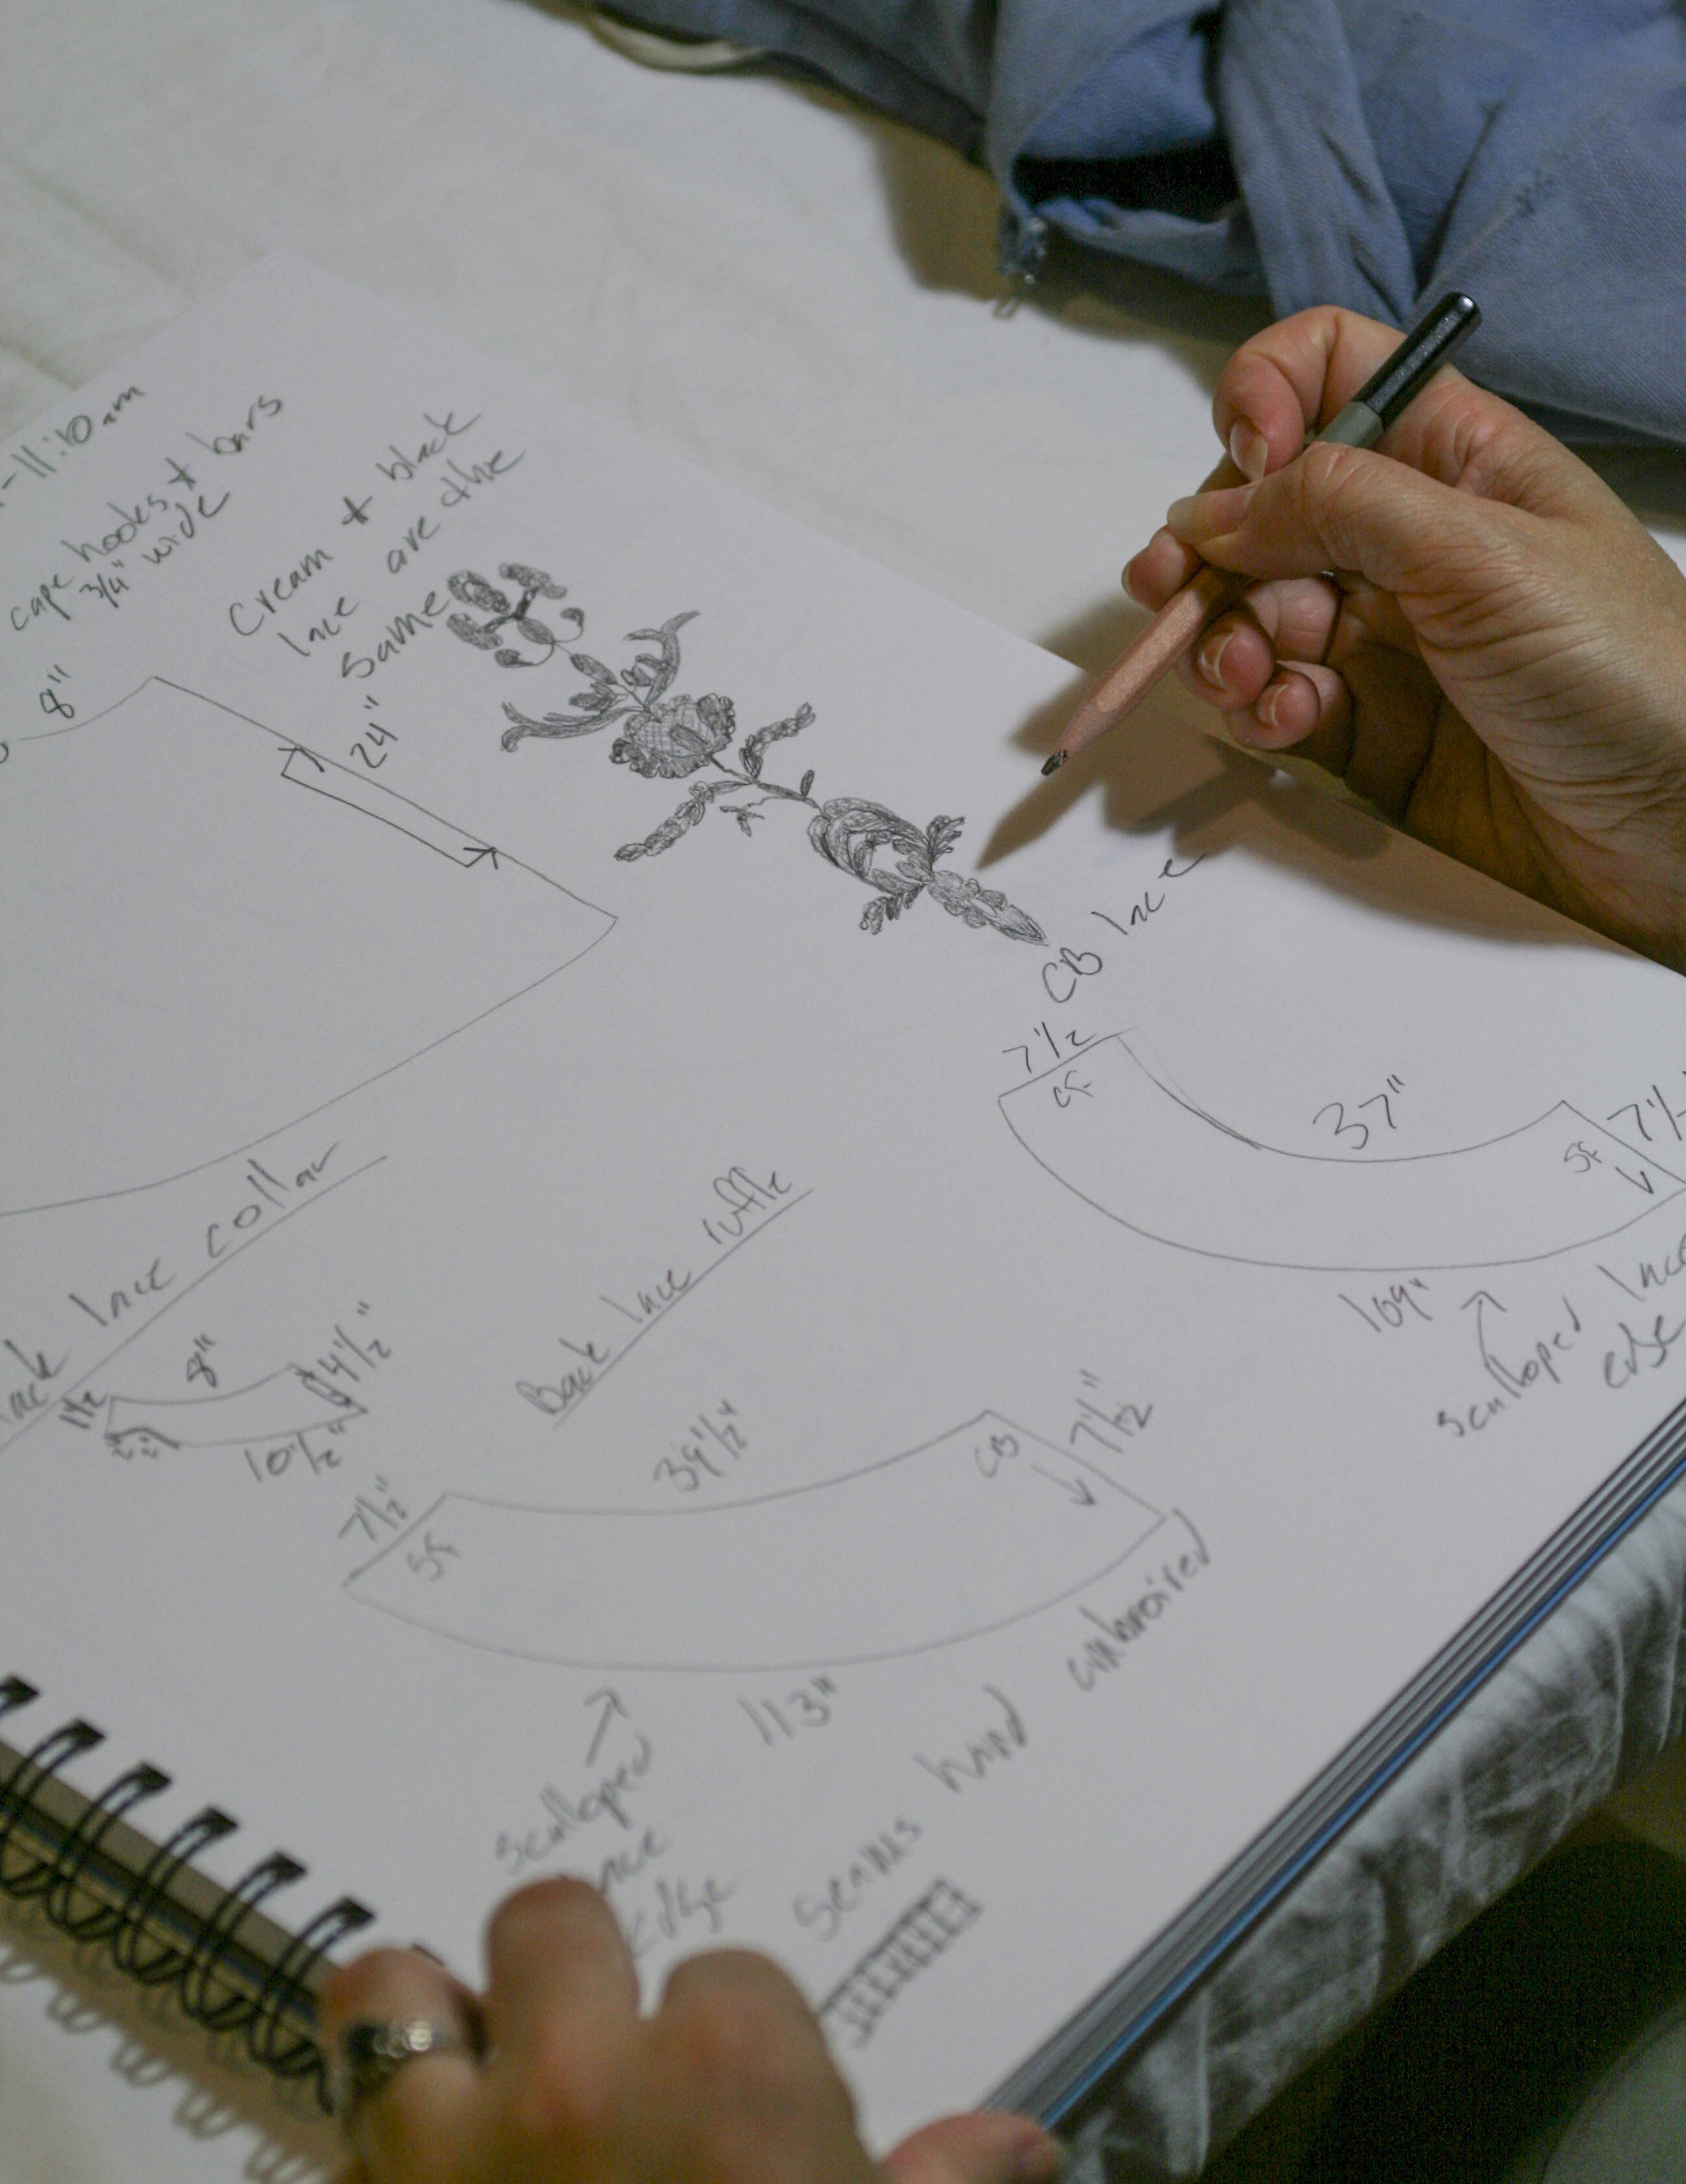 -11:10am
cape hooks + bars
3/4" wide
Cream + black
lace are the
same
8"
24"
CB lace
7 1/2
CF
37"
SF
109"
scalloped lace
edge
lace collar
8"
1 1/2
4 1/2"
10 1/2"
2"
Back lace ruffle
7 1/2"
39 1/2"
7 1/2"
CB
113"
scalloped
edge
seams hand embroired